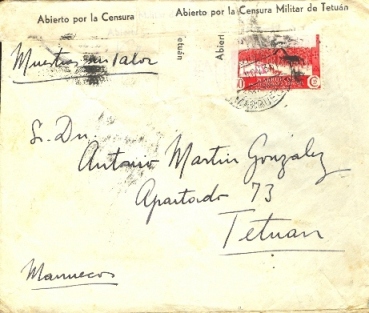 Abierto por la Censura
Abierto por la Censura Militar de Tetuán
etuán
Abiert
Muestras sin valor
Sr. Dn.
Antonio Martin Gonzalez
Apartado 73
Tetuan
Marruecos